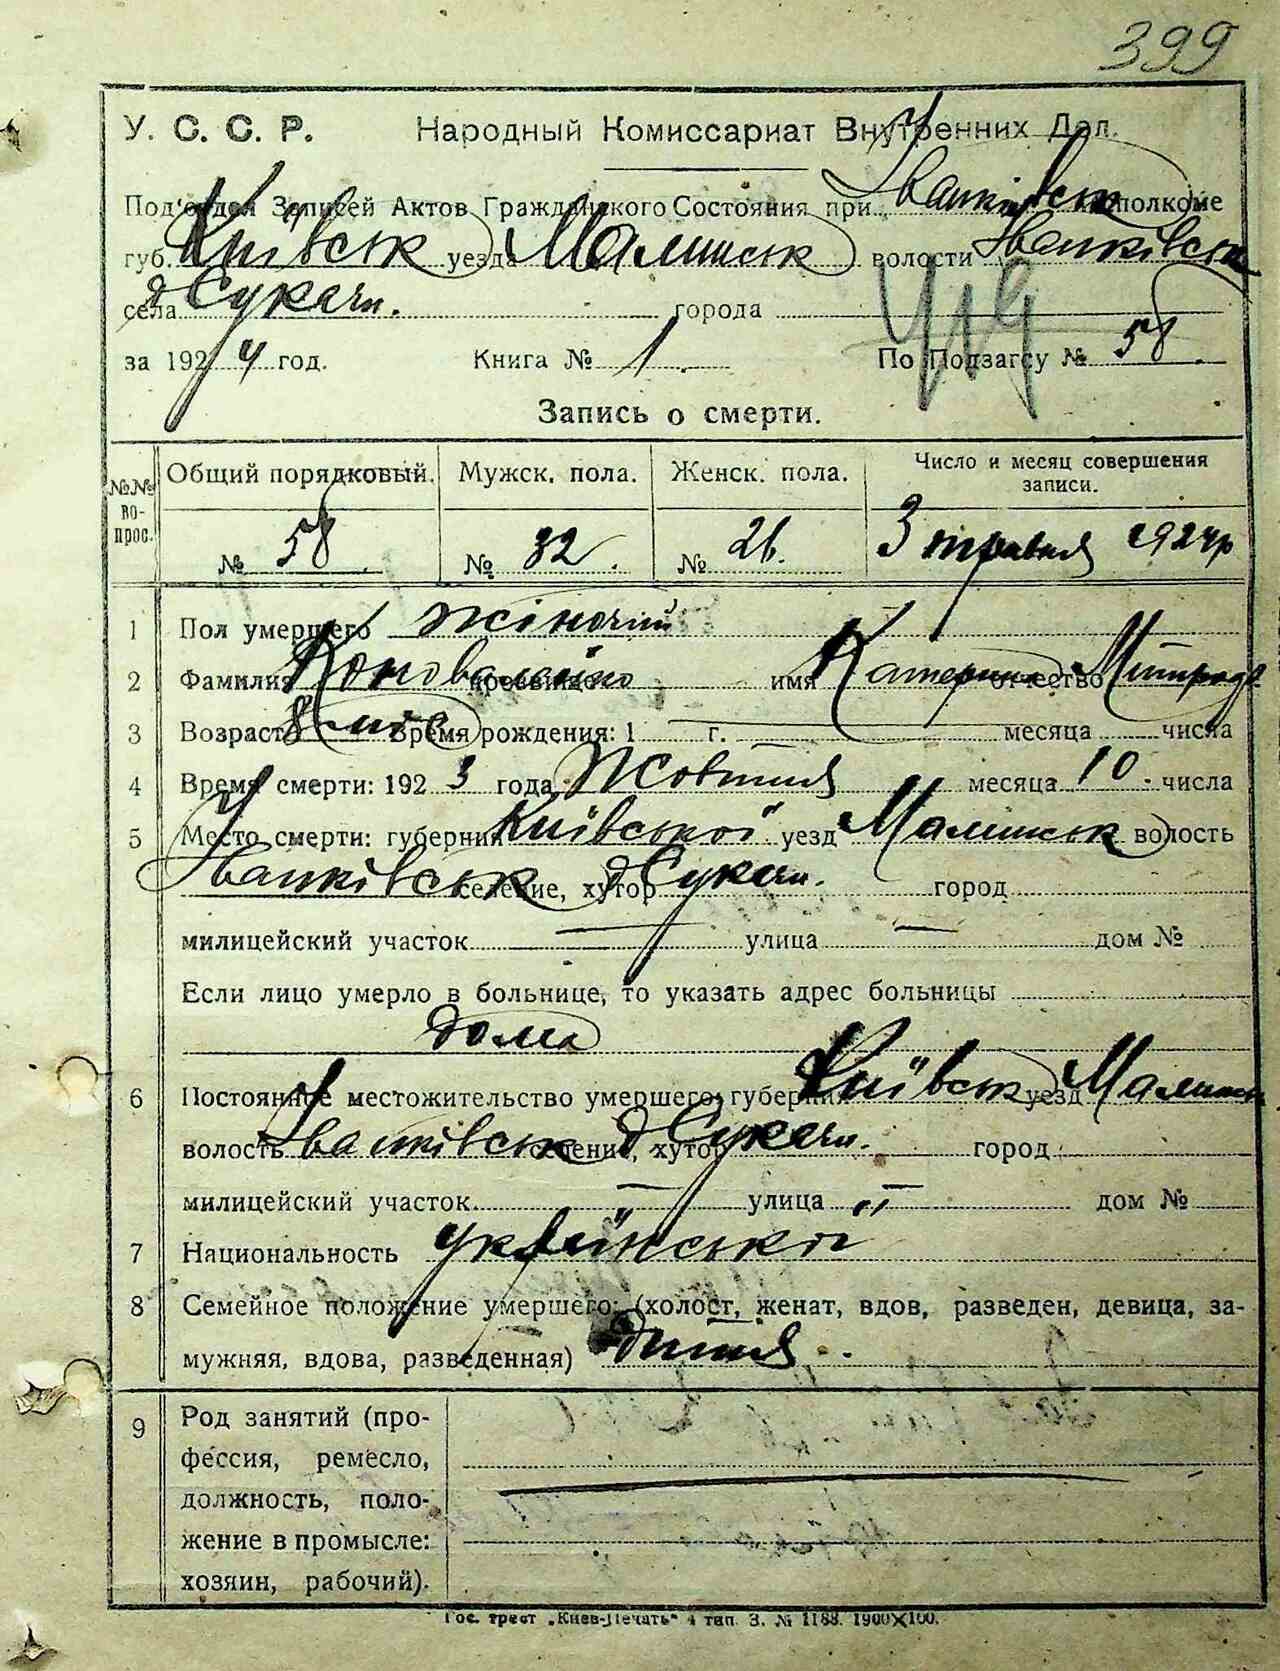 399
У. С. С. Р. Народный Комиссариат Внутренних Дел.
Под'отдел Записей Актов Гражданского Состояния при Іванківськ исполкоме
губ. Київськ уезда Малинськ волости Іванківськ
села д Сукачи. города
за 1924 год. Книга № 1. По Подзагсу № 58.
Запись о смерти.
№№ вопрос. Общий порядковый. Мужск. пола. Женск. пола. Число и месяц совершения записи.
№ 58. № 32. № 26. 3 травня 1924р
1 Пол умершего жіночий
2 Фамилия Коновалейко прозвище имя Катерина отчество
3 Возраст 8 Время рождения: 1 г. месяца числа
4 Время смерти: 1923 года Жовтня месяца 10. числа
5 Место смерти: губерния Київської уезд Малинськ волость
Іванківськ селение, хутор д Сукачи. город
милицейский участок улица дом №
Если лицо умерло в больнице, то указать адрес больницы
дома
6 Постоянное местожительство умершего: губерния Київськ уезд Малинськ
волость Іванківськ селение, хутор д Сукачи. город
милицейский участок улица дом №
7 Национальность української
8 Семейное положение умершего: (холост, женат, вдов, разведен, девица, за-
мужняя, вдова, разведенная) дитя.
9 Род занятий (про-
фессия, ремесло,
должность, поло-
жение в промысле:
хозяин, рабочий).
Гос. трест „Киев-Печать" 4 тип. З. № 1188. 1900×100.